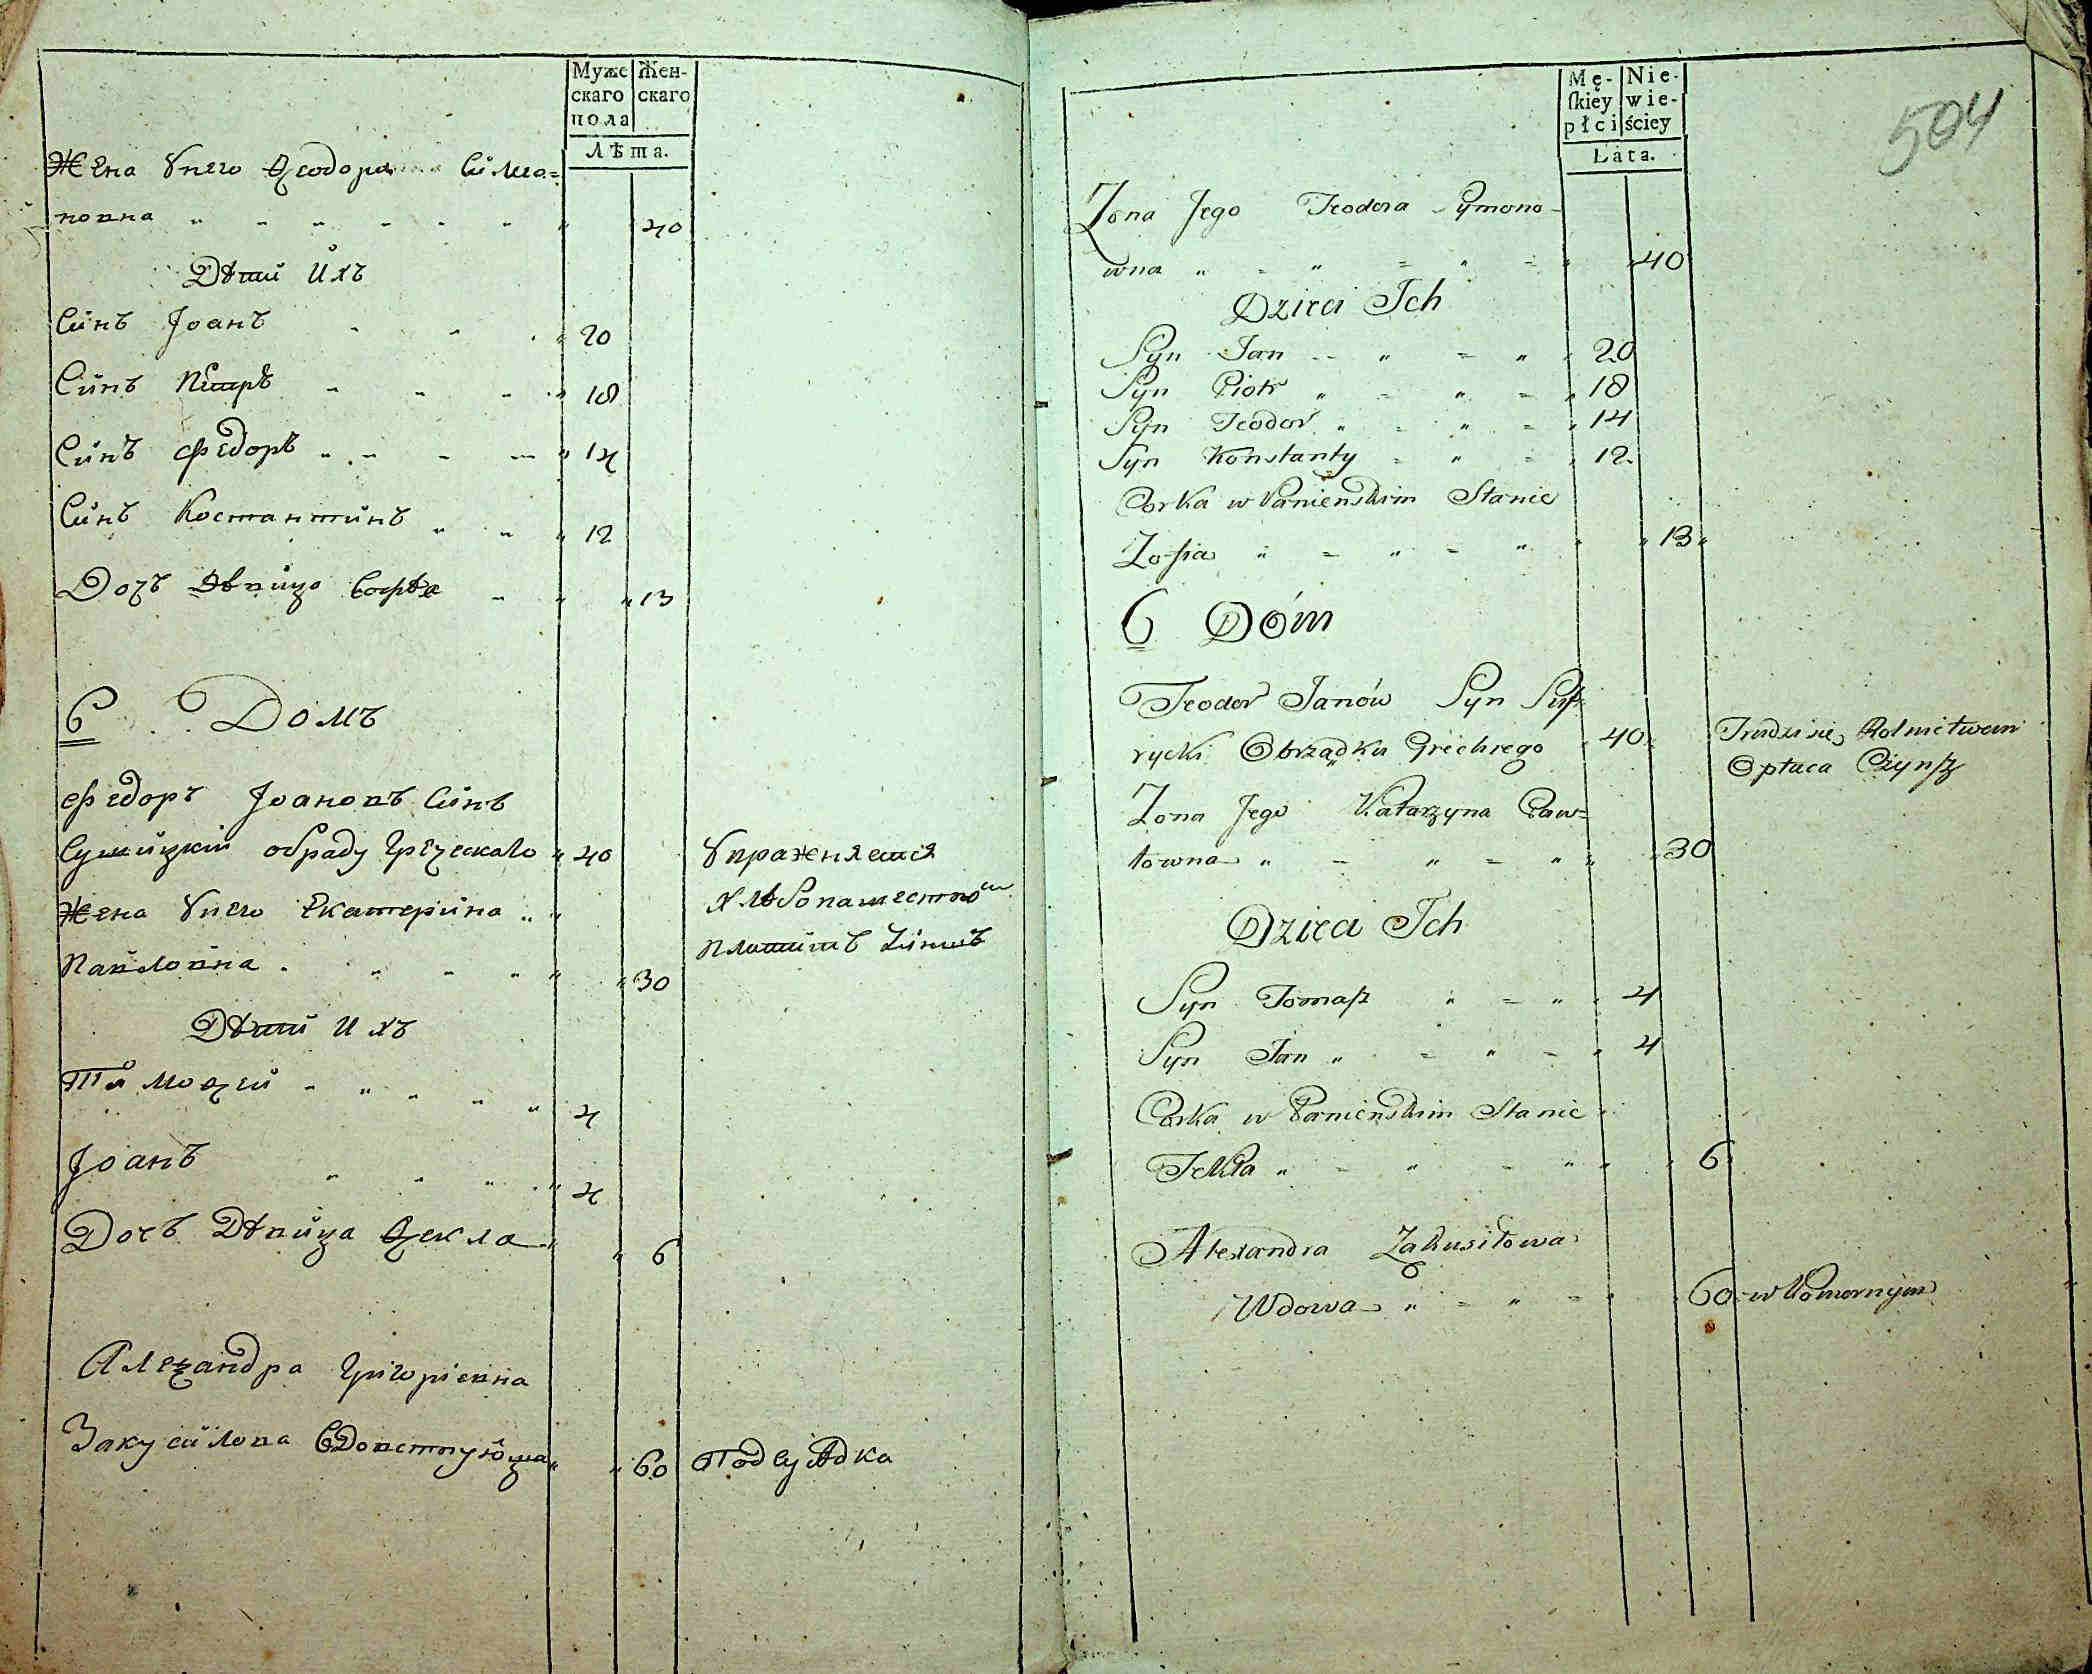 Муже Жен-
скаго скаго
пола
Лѣта.
Жена Унего Ѳеодора Симо=
новна 40
Дѣти Ихъ
Синъ Іоанъ 20
Синъ Петръ 18
Синъ Федоръ 14
Синъ Костантинъ 12
Дочъ Дѣвица Софѣя 13
6 Домъ
Федоръ Іоановъ Синъ
обраду Греческаго 40 Упражняется
Жена Унего Екатерина хлѣбопашество
Павловна 30 Платитъ Чиншъ
Дѣти Ихъ
Тимоѳей 4
Іоанъ 4
Дочъ Дѣвица Ѳекла 6
Алеѯандра Григоріевна
Закусилова Вдовствующа 60 Подсусѣдка
504
Mę- Nie-
ſkiey wie-
płci ściey
Łata.
Zona Jego Teodora Symono=
wna 40
Dzieci Ich
Syn Jan 20
Syn Piotr 18
Syn Teodor 14
Syn Konstanty 12
Corka w Panienskim Stanie
Zofia 13
6 Dóm
Teodor Janów Syn
rycki Obrządku Grechiego 40 Trudzi się Rolnictwem
Opłaca Czynſz
Zona Jego Katarzyna Paw=
łowna 30
Dzieci Ich
Syn Tomaſz 4
Syn Jan 4
Corka w Panienskim Stanie
Tekla 6
Alexandra Zakusiłowa
Wdowa 60 w Komornym